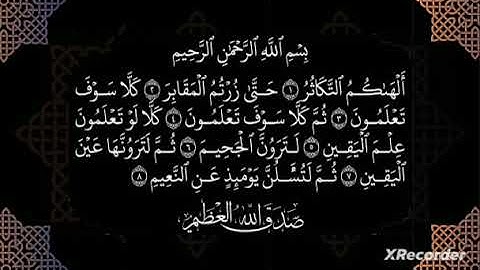 بِسْمِ ٱللَّهِ ٱلرَّحْمَٰنِ ٱلرَّحِيمِ
أَلْهَىٰكُمُ ٱلتَّكَاثُرُ ١ حَتَّىٰ زُرْتُمُ ٱلْمَقَابِرَ ٢ كَلَّا سَوْفَ
تَعْلَمُونَ ٣ ثُمَّ كَلَّا سَوْفَ تَعْلَمُونَ ٤ كَلَّا لَوْ تَعْلَمُونَ
عِلْمَ ٱلْيَقِينِ ٥ لَتَرَوُنَّ ٱلْجَحِيمَ ٦ ثُمَّ لَتَرَوُنَّهَا عَيْنَ
ٱلْيَقِينِ ٧ ثُمَّ لَتُسْـَٔلُنَّ يَوْمَئِذٍ عَنِ ٱلنَّعِيمِ ٨
صَدَقَ اللهُ العَظِيم
XRecorder